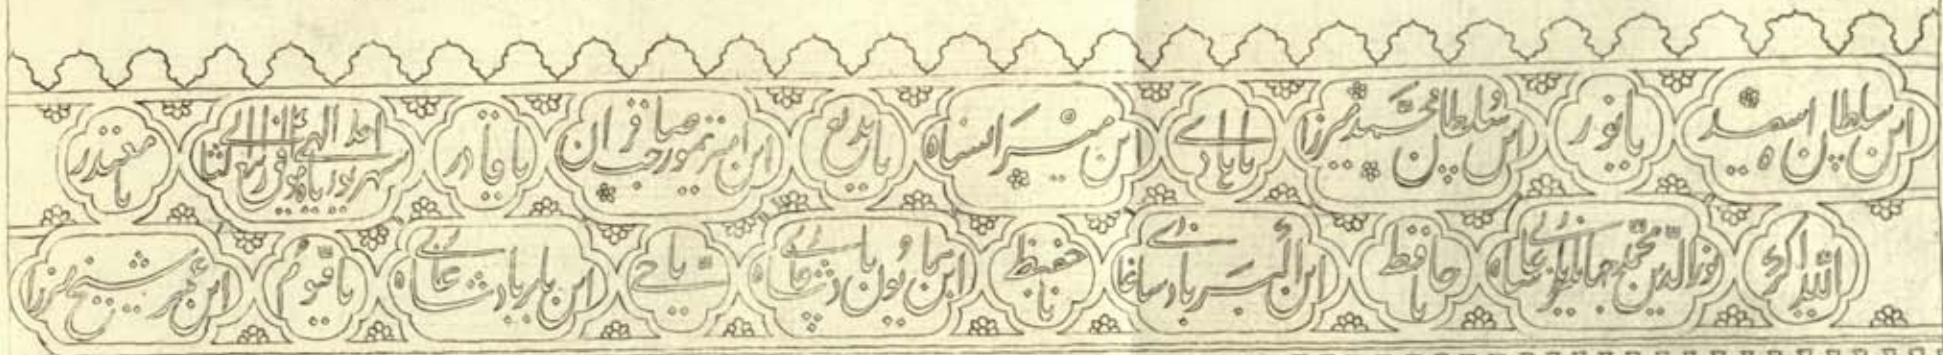 ابن سلطان ابوسعید یا نور ابن سلطان محمد میرزا یا هادی ابن میرانشاه یا بدیع ابن امیر تیمور صاحبقران یا قادر الهی شهریور ماه موافق یا مقتدر
الله اکبر نورالدین محمد جهانگیر پادشاه غازی یا حافظ ابن اکبر پادشاه غازی یا حفیظ ابن همایون پادشاه غازی یا حی ابن بابر پادشاه غازی یا قیوم ابن عمر شیخ میرزا